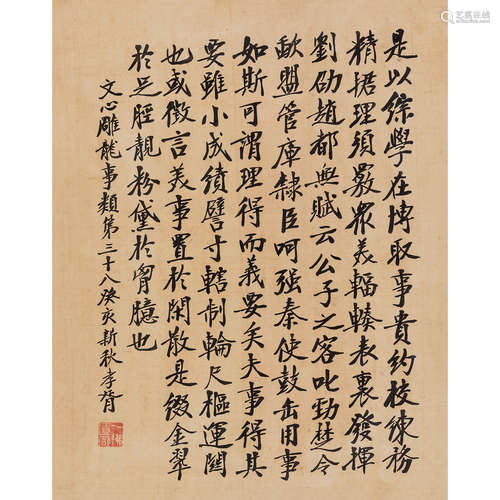 是以綜學在博取事貴約校練務
精捃理須覈眾美輻輳表裏發揮
劉劭趙都無賦云公子之客叱勁楚令
歃盟管庫隸臣呵强秦使鼓缶用事
如斯可謂理得而義要矣夫事得其
要雖小成績譬寸轄制輪尺樞運關
也或微言美事置於閑散是綴金翠
於足脛靚粉黛於胷臆也
文心雕龍事類第三十八癸亥新秋孝胥
艺狐在线